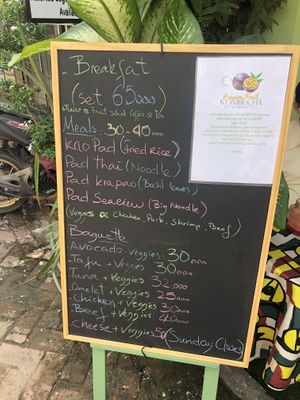 Breakfast
(set 65000)
Juice or Fruit salad Coffee or Tea
Meals. 30-40000
Kao Pad (Fried Rice)
Pad thai (Noodle)
Pad krapao (Basil leaves)
Pad Seaview (Big Noodle)
(Veggies or Chicken, Pork, Shrimp, Beef)
Baguette
.Avocado + Veggies 30000
.Tofu + Veggies 30000
.Tuna + Veggies 32000
.Omelet + Veggies 25000
.Chicken + Veggies 30000
.Beef + Veggies 40000
.cheese + Veggies 50 (Sunday Close)
Passion Fruit
KOMBUCHA